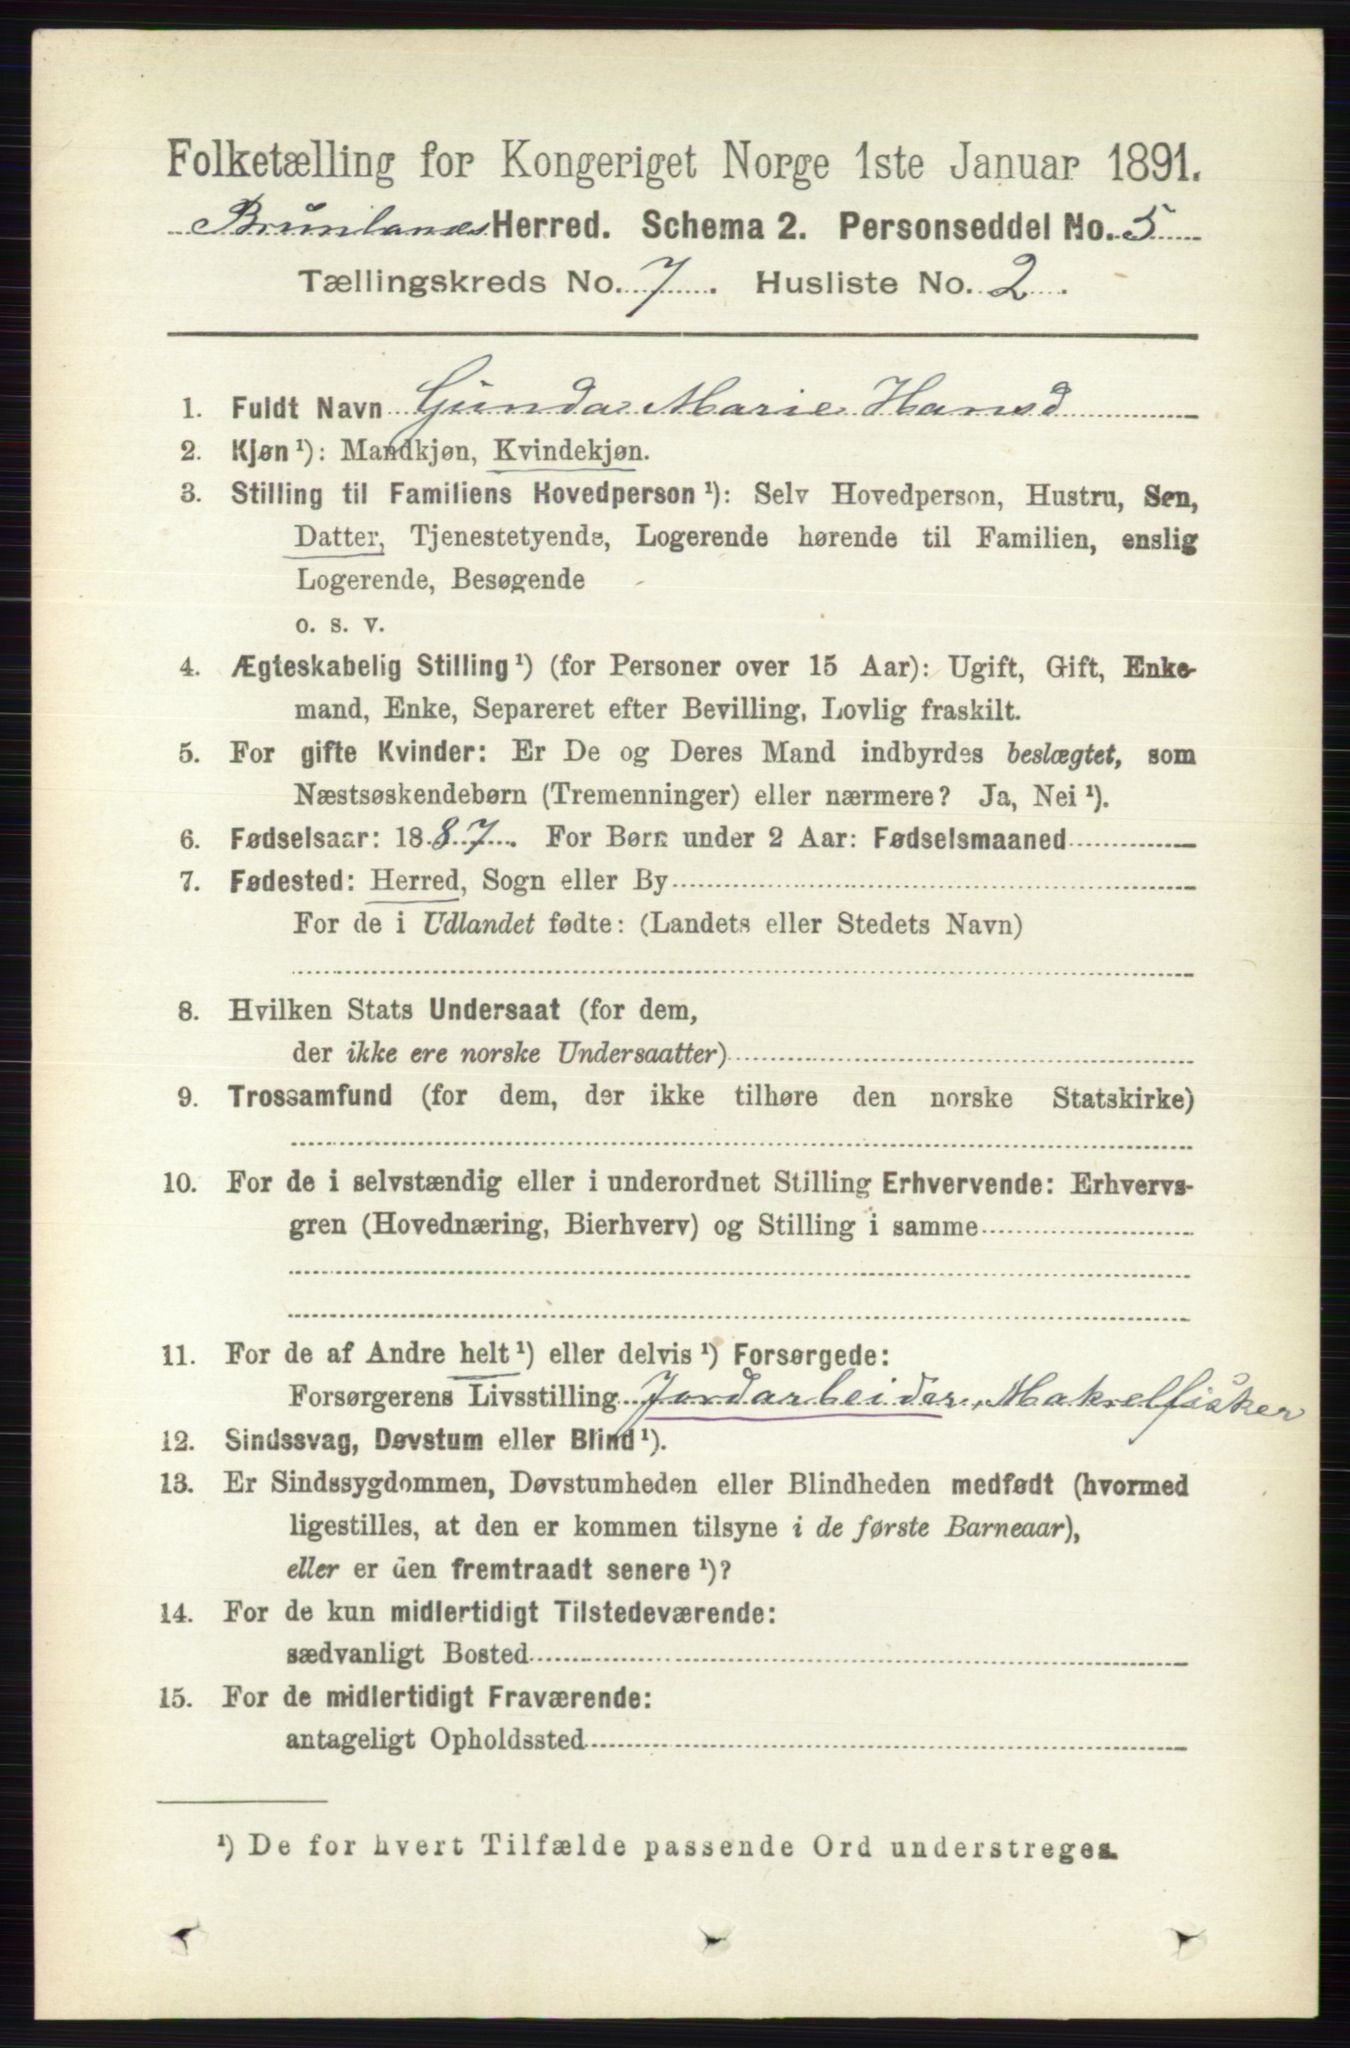 Folketælling for Kongeriget Norge 1ste Januar 1891.
Brunlanes Herred. Schema 2. Personseddel No. 5
Tællingskreds No. 7. Husliste No. 2.
1. Fuldt Navn Gunda Marie Hansd
2. Kjøn¹): Mandkjøn, Kvindekjøn.
3. Stilling til Familiens Hovedperson¹): Selv Hovedperson, Hustru, Søn,
Datter, Tjenestetyende, Logerende hørende til Familien, enslig
Logerende, Besøgende
o. s. v.
4. Ægteskabelig Stilling¹) (for Personer over 15 Aar): Ugift, Gift, Enke-
mand, Enke, Separeret efter Bevilling, Lovlig fraskilt.
5. For gifte Kvinder: Er De og Deres Mand indbyrdes beslægtet, som
Næstsøskendebørn (Tremenninger) eller nærmere? Ja, Nei¹).
6. Fødselsaar: 1887. For Børn under 2 Aar: Fødselsmaaned
7. Fødested: Herred, Sogn eller By
For de i Udlandet fødte: (Landets eller Stedets Navn)
8. Hvilken Stats Undersaat (for dem,
der ikke ere norske Undersaatter)
9. Trossamfund (for dem, der ikke tilhøre den norske Statskirke)
10. For de i selvstændig eller i underordnet Stilling Erhvervende: Erhvervs-
gren (Hovednæring, Bierhverv) og Stilling i samme
11. For de af Andre helt¹) eller delvis¹) Forsørgede:
Forsørgerens Livsstilling Jordarbeider, Makrelfisker
12. Sindssvag, Døvstum eller Blind¹).
13. Er Sindssygdommen, Døvstumheden eller Blindheden medfødt (hvormed
ligestilles, at den er kommen tilsyne i de første Barneaar),
eller er den fremtraadt senere¹)?
14. For de kun midlertidigt Tilstedeværende:
sædvanligt Bosted
15. For de midlertidigt Fraværende:
antageligt Opholdssted
¹) De for hvert Tilfælde passende Ord understreges.